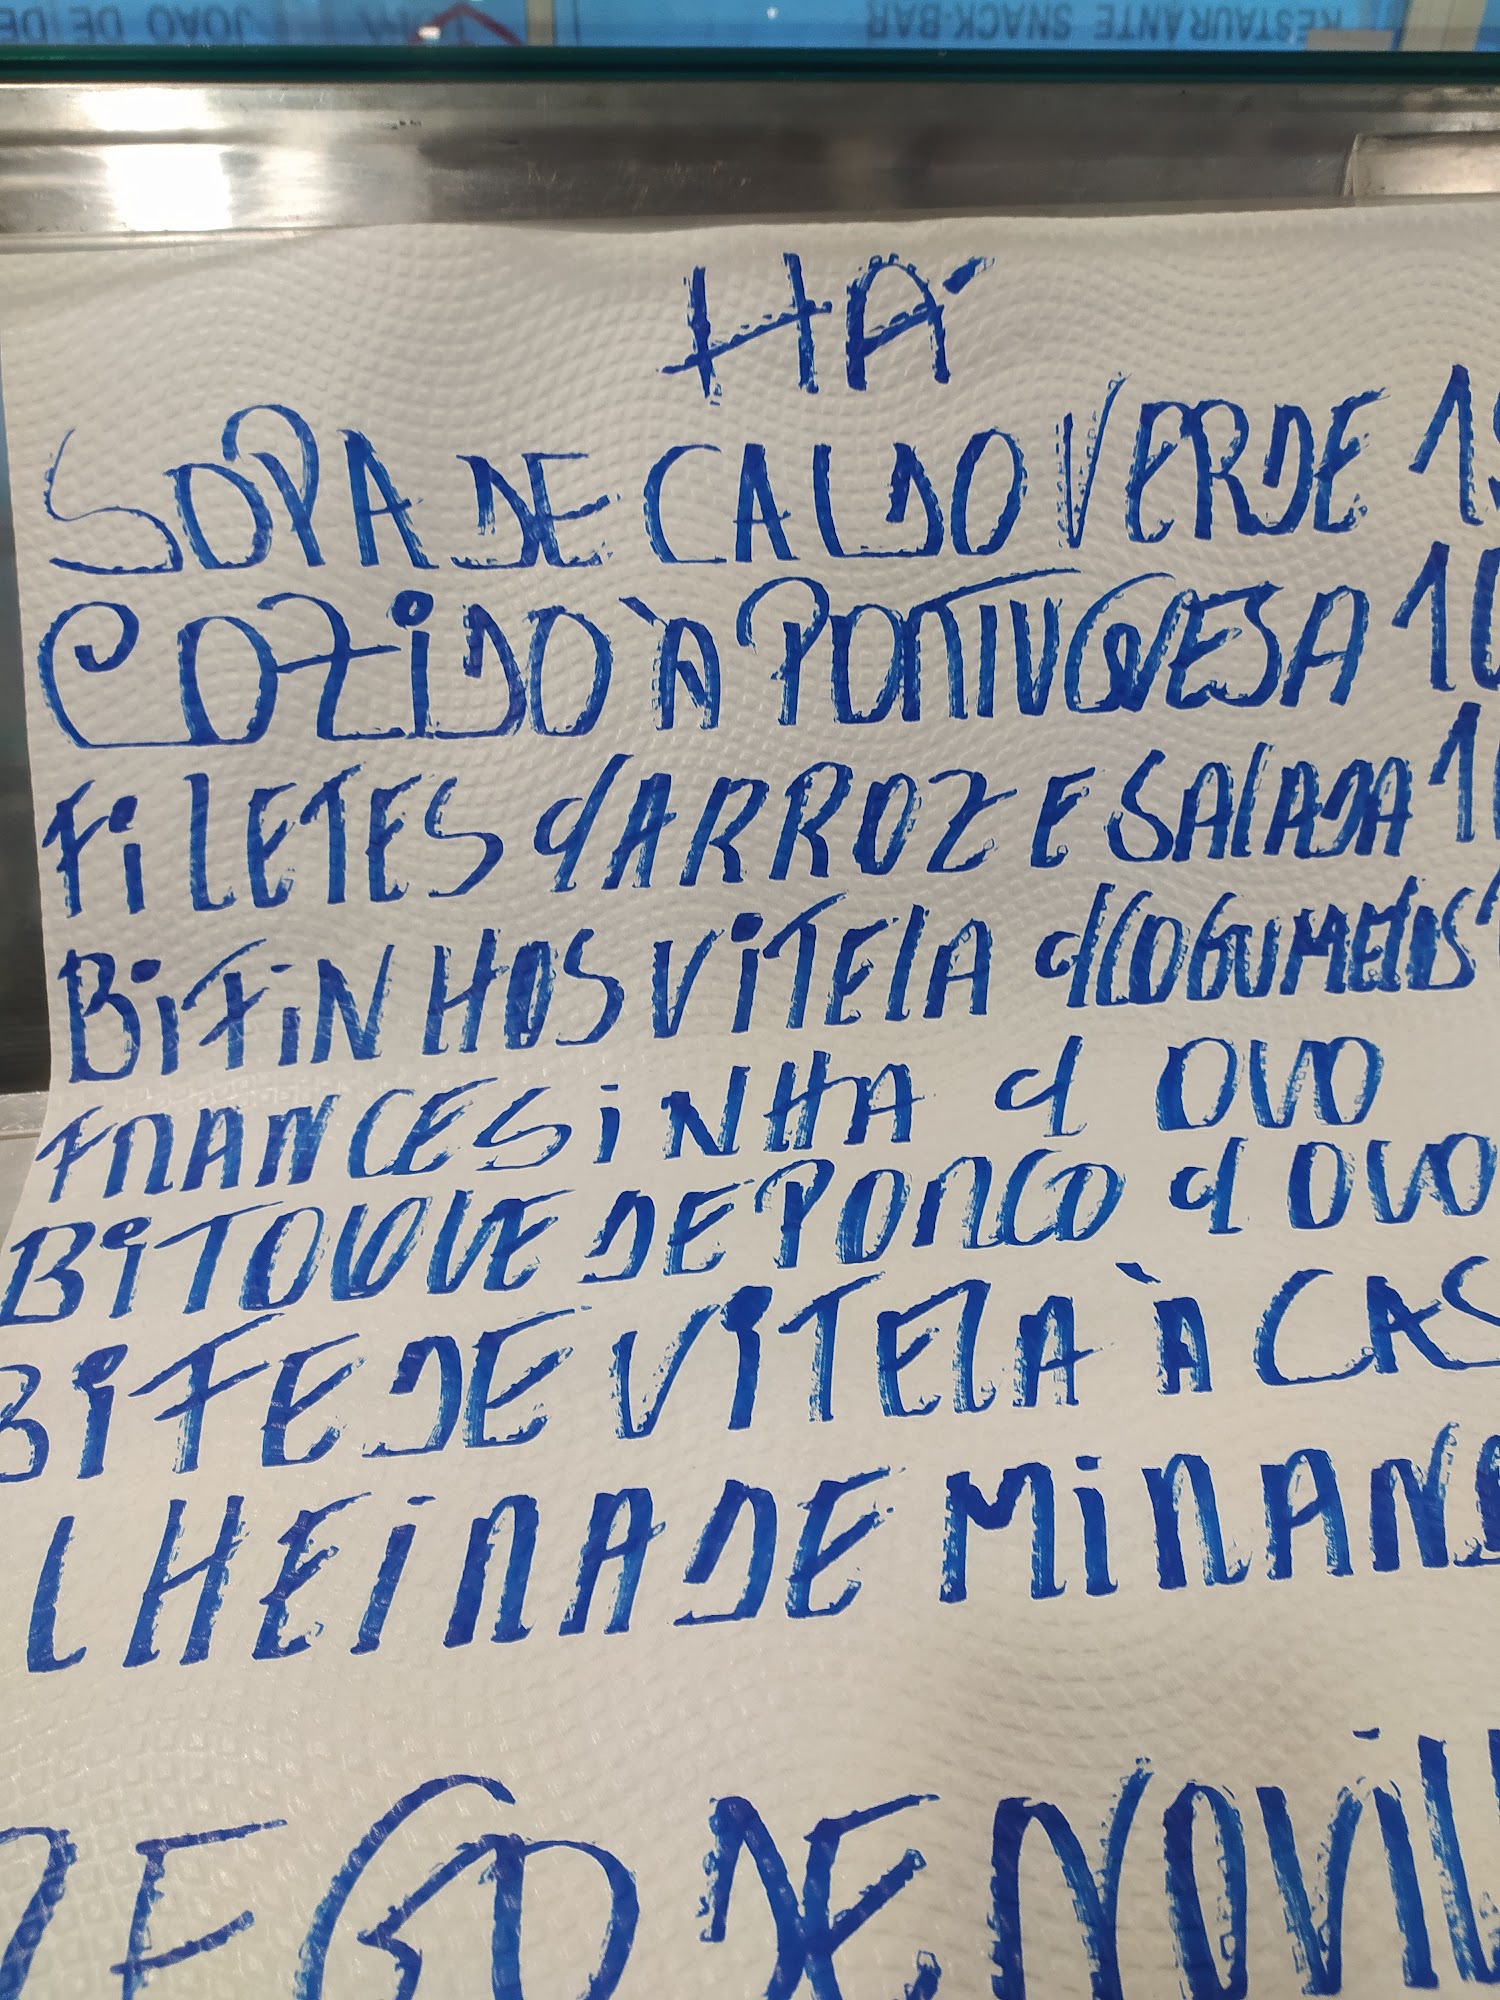 RESTAURANTE SNACK-BAR
JOAO DE DE
HÁ
SOPA DE CALDO VERDE
COZIDO À PORTUGUESA
FILETES C/ARROZ E SALADA
BIFINHOS VITELA C/COGUMELOS
FRANCESINHA C/ OVO
BITOQUE DE PORCO C/ OVO
BIFE DE VITELA À CAS
LHEIRA DE MIRAND
EGO DE NOVIL